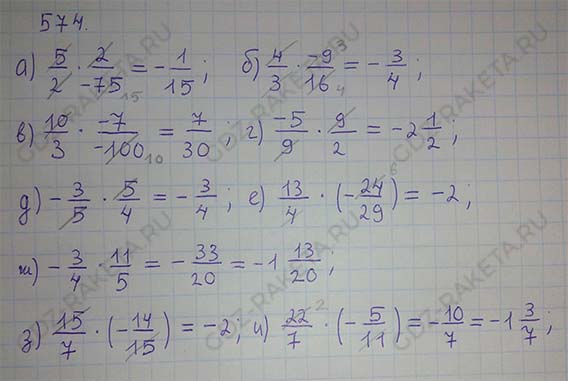 574.
а) 5/2 · 2/-75 15 = - 1/15; б) 4/3 · -9 3/16 4 = - 3/4;
в) 10/3 · -7/-100 10 = 7/30; г) -5/9 · 9/2 = -2 1/2;
д) - 3/5 · 5/4 = - 3/4; е) 13/4 · (- 24 6/29) = -2;
ж) - 3/4 · 11/5 = - 33/20 = -1 13/20;
з) 15/7 · (- 14/15) = -2; и) 22 2/7 · (- 5/11) = - 10/7 = -1 3/7;
GDZ-RAKETA.RU